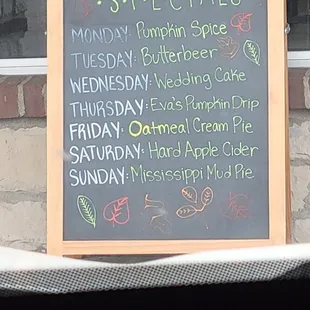 SPECIALS
MONDAY: Pumpkin Spice
TUESDAY: Butterbeer
WEDNESDAY: Wedding Cake
THURSDAY: Eva's Pumpkin Drip
FRIDAY: Oatmeal Cream Pie
SATURDAY: Hard Apple Cider
SUNDAY: Mississippi Mud Pie